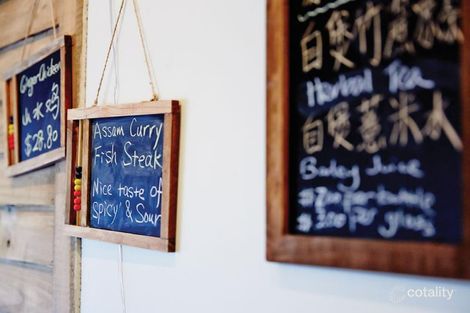 Ginger Chicken
$28.80
Assam Curry
Fish Steak
Nice taste of
'Spicy' & Sour
自煲竹蔗
Herbal Tea
自煲薏米水
Barley Juice
per glass
cotality